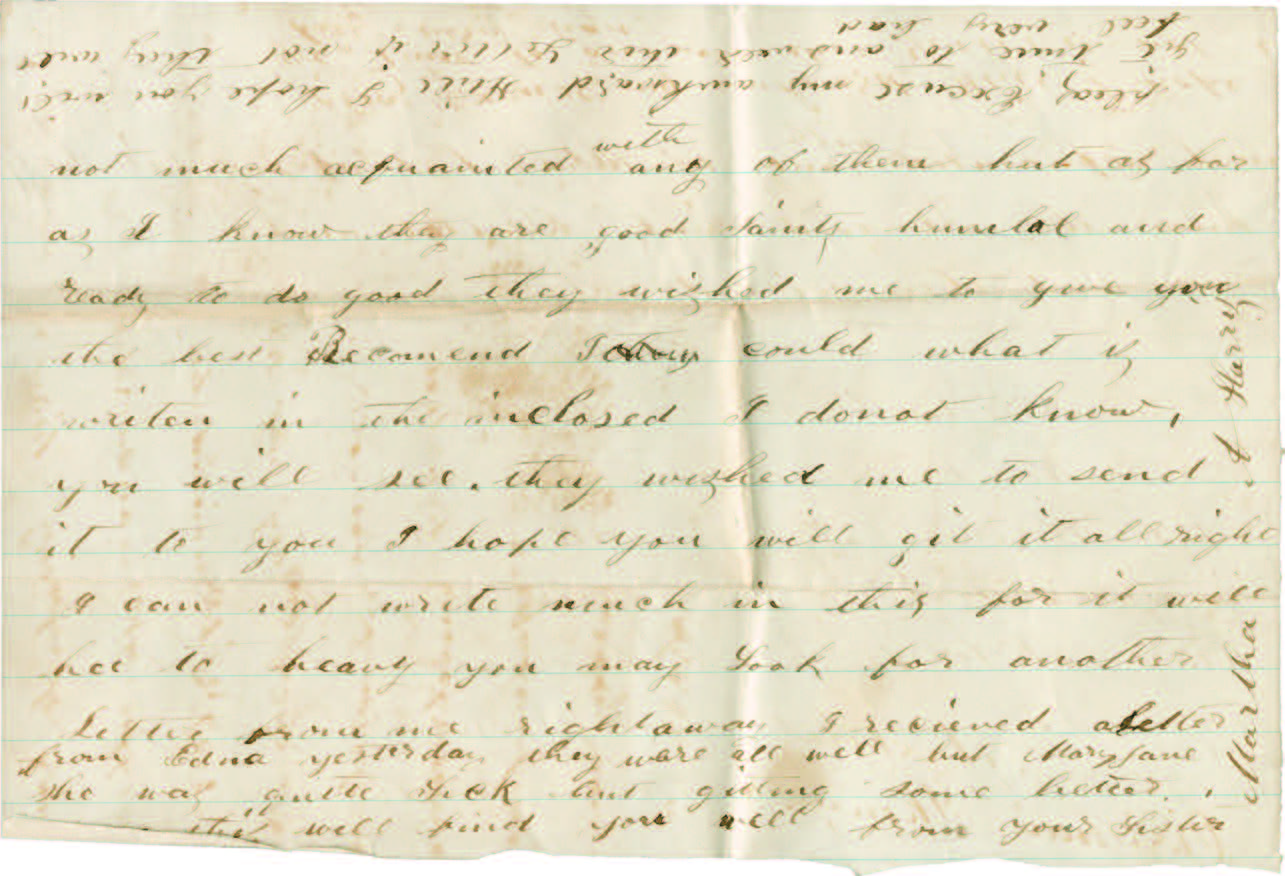 not much acquainted with any of them but as far
as I know they are good Saints humbal and
ready to do good they wished me to give you
the best Recomend I could what is
writen in the inclosed I donot know,
you will see. they wished me to send
it to you I hope you will git it all right
I can not write much in this for it will
bee to heavy you may Look for another
Letter from me right away I recieved a letter
from Edna yesterday they were all well but Mary Jane
she was quite Sick but gitting some better.
this will find you well from your Sister
Martha A Harris
pleas Excuse my awkward Stile I hope you will
git time to answer this Letter if not they will
feel very bad